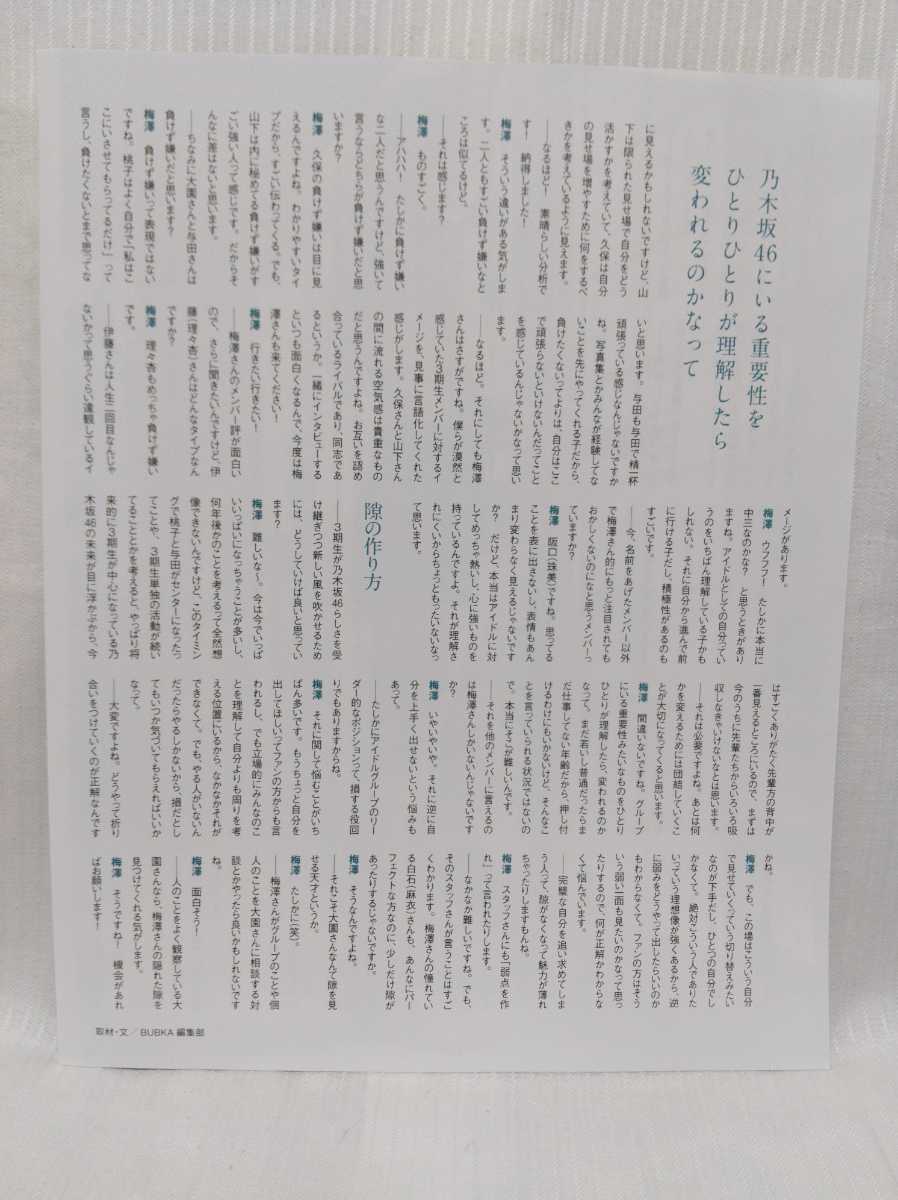 乃木坂46にいる重要性を
ひとりひとりが理解したら
変われるのかなって
に見えるかもしれないですけど、山
下は限られた見せ場で自分をどう
活かすかを考えていて、久保は自分
の見せ場を増やすために何をするべ
きかを考えているように見えます。
――なるほど！　素晴らしい分析で
す！　納得しました！
梅澤　そういう違いがある気がしま
す。二人ともすごい負けず嫌いなと
ころは似てるけど。
――それは感じます？
梅澤　ものすごく。
――アハハハ！　たしかに負けず嫌い
な二人だと思うんですけど、強いて
言うならどちらが負けず嫌いだと思
いますか？
梅澤　久保の負けず嫌いは目に見
えるんですよね。わかりやすいタイ
プだから、すごい伝わってくる。でも、
山下は内に秘めてる負けず嫌いがす
ごい強い人って感じです。だからそ
んなに差はないと思います。
――ちなみに大園さんと与田さんは
負けず嫌いだと思います？
梅澤　負けず嫌いって表現ではない
ですね。桃子はよく自分で「私はこ
こにいさせてもらってるだけ」って
言うし、負けたくないとまで思ってな
いと思います。与田も与田で精一杯
頑張っている感じなんじゃないですか
ね。写真集とかみんなが経験してな
いことを先にやってくれる子だから、
負けたくないってよりは、自分はここ
で頑張らないといけないんだってこと
を感じているんじゃないかなって思い
ます。
――なるほど。それにしても梅澤
さんはさすがですね。僕らが漠然と
感じていた3期生メンバーに対するイ
メージを、見事に言語化してくれた
感じがします。久保さんと山下さん
の間に流れる空気感は貴重なもの
だと思うんですよね。お互いを認め
合っているライバルであり、同志であ
るというか。一緒にインタビューする
といつも面白くなるんで、今度は梅
澤さんも来てください！
梅澤　行きたい行きたい！
――梅澤さんのメンバー評が面白い
ので、さらに聞きたいんですけど、伊
藤（理々杏）さんはどんなタイプなん
ですか？
梅澤　理々杏もめっちゃ負けず嫌い
です。
――伊藤さんは人生二回目なんじゃ
ないかって思うぐらい達観しているイ
メージがあります。
梅澤　ウフフフ！　たしかに本当に
中三なのかな？　と思うときがあり
ますね。アイドルとしての自分ってい
うのをいちばん理解している子かも
しれない。それに自分から進んで前
に行ける子だし、積極性があるのも
すごいです。
――今、名前をあげたメンバー以外
で梅澤さん的にもっと注目されても
おかしくないのになと思うメンバーっ
ていますか？
梅澤　阪口（珠美）ですね。思ってる
ことを表に出さないし、表情もあん
まり変わらなく見えるじゃないです
か？　だけど、本当はアイドルに対
してめっちゃ熱いし、心に強いものを
持っているんですよ。それが理解さ
れにくいからちょっともったいないなっ
て思います。
隙の作り方
――3期生が乃木坂46らしさを受
け継ぎつつ新しい風を吹かせるため
には、どうしていけば良いと思ってい
ます？
梅澤　難しいな～。今は今でいっぱ
いいっぱいになっちゃうことが多いし、
何年後かのことを考えるって全然想
像できないんですけど、このタイミン
グで桃子と与田がセンターになったっ
てことや、3期生単独の活動が続い
てることとかを考えると、やっぱり将
来的に3期生が中心になっている乃
木坂46の未来が目に浮かぶから、今
はすごくありがたく先輩方の背中が
一番見えるところにいるので、まずは
今のうちに先輩たちからいろいろ吸
収しなきゃいけないなとは思います。
――それは必要ですよね。あとは何
かを変えるためには団結していくこ
とが大切になってくると思います。
梅澤　間違いないですね。グループ
にいる重要性みたいなものをひとり
ひとりが理解したら、変われるのか
なって。まだ若いし普通だったらま
だ仕事してない年齢だから、押し付
けるわけにもいかないけど、そんなこ
とを言っていられる状況ではないの
で。本当にそこが難しいんです。
――それを他のメンバーに言えるの
は梅澤さんしかいないんじゃないです
か？
梅澤　いやいやいや。それに逆に自
分を上手く出せないという悩みも
あって。
――たしかにアイドルグループのリー
ダー的なポジションって、損する役回
りでもありますからね。
梅澤　それに関して悩むことがいち
ばん多いです。もうちょっと自分を
出してほしいってファンの方からも言
われるし、でも立場的にみんなのこ
とを理解して自分よりも周りを考
える位置にいるから、なかなかそれが
できなくて。でも、やる人がいないん
だったらやるしかないから、損だとし
てもいつか気づいてもらえればいいか
なって。
――大変ですよね。どうやって折り
合いをつけていくのが正解なんです
かね。
梅澤　でも、この場はこういう自分
で見せていくっていう切り替えみたい
なのが下手だし、ひとつの自分でし
かなくて。絶対こういう人でありた
いっていう理想像が強くあるから、逆
に弱みをどうやって出したらいいのか
もわからなくて。ファンの方はそう
いう弱い一面も見たいのかなって思っ
たりするので、何が正解かわからな
くて悩んでいます。
――完璧な自分を追い求めてしま
う人って、隙がなくなって魅力が薄れ
ちゃったりしますもんね。
梅澤　スタッフさんにも「弱点を作
れ」って言われたりします。
――なかなか難しいですよね。でも、
そのスタッフさんが言うことはすご
くわかります。梅澤さんの憧れてい
る白石（麻衣）さんも、あんなにパー
フェクトな方なのに、少しだけ隙が
あったりするじゃないですか。
梅澤　そうなんですよね。
――それこそ大園さんなんて隙を見
せる天才というか。
梅澤　たしかに（笑）。
――梅澤さんがグループのことや個
人のことを大園さんに相談する対
談とかやったら良いかもしれないです
ね。
梅澤　面白そう！
――人のことをよく観察している大
園さんなら、梅澤さんの隠れた隙を
見つけてくれる気がします。
梅澤　そうですね！　機会があれ
ばお願いします！
取材・文／BUBKA編集部